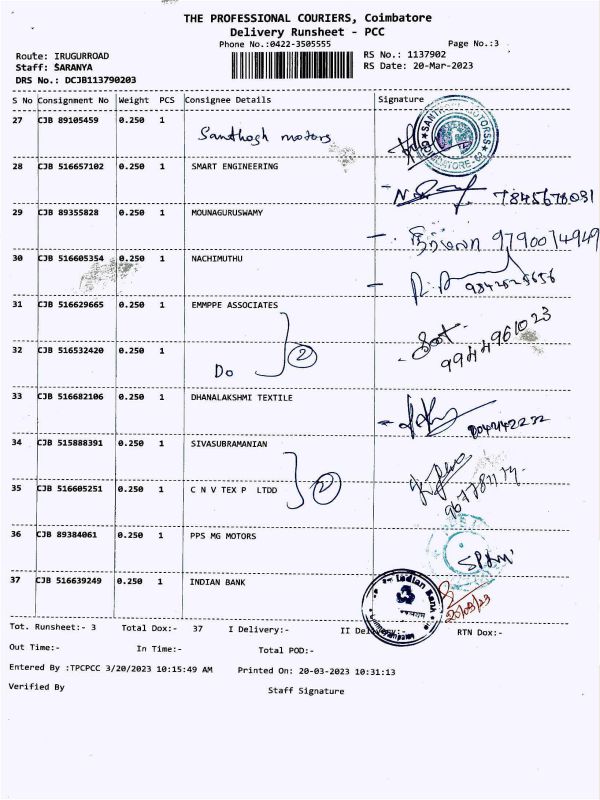 THE PROFESSIONAL COURIERS, Coimbatore
Delivery Runsheet - PCC
Phone No.:0422-3505555 Page No.:3
Route: IRUGURROAD RS No.: 1137902
Staff: SARANYA RS Date: 20-Mar-2023
DRS No.: DCJB113790203
S No Consignment No Weight PCS Consignee Details Signature
27 CJB 89105459 0.250 1 Santhosh motors
28 CJB 516657102 0.250 1 SMART ENGINEERING 7845678031
29 CJB 89355828 0.250 1 MOUNAGURUSWAMY நிர்மலா 9790074949
30 CJB 516605354 0.250 1 NACHIMUTHU
31 CJB 516629665 0.250 1 EMMPPE ASSOCIATES
2 9944961023
32 CJB 516532420 0.250 1 Do
33 CJB 516682106 0.250 1 DHANALAKSHMI TEXTILE
34 CJB 515888391 0.250 1 SIVASUBRAMANIAN
2
35 CJB 516605251 0.250 1 C N V TEX P LTDD
36 CJB 89384061 0.250 1 PPS MG MOTORS
37 CJB 516639249 0.250 1 INDIAN BANK Indian Bank
20/03/23
Tot. Runsheet:- 3 Total Dox:- 37 I Delivery:- II Delivery:- RTN Dox:-
Out Time:- In Time:- Total POD:-
Entered By :TPCPCC 3/20/2023 10:15:49 AM Printed On: 20-03-2023 10:31:13
Verified By Staff Signature